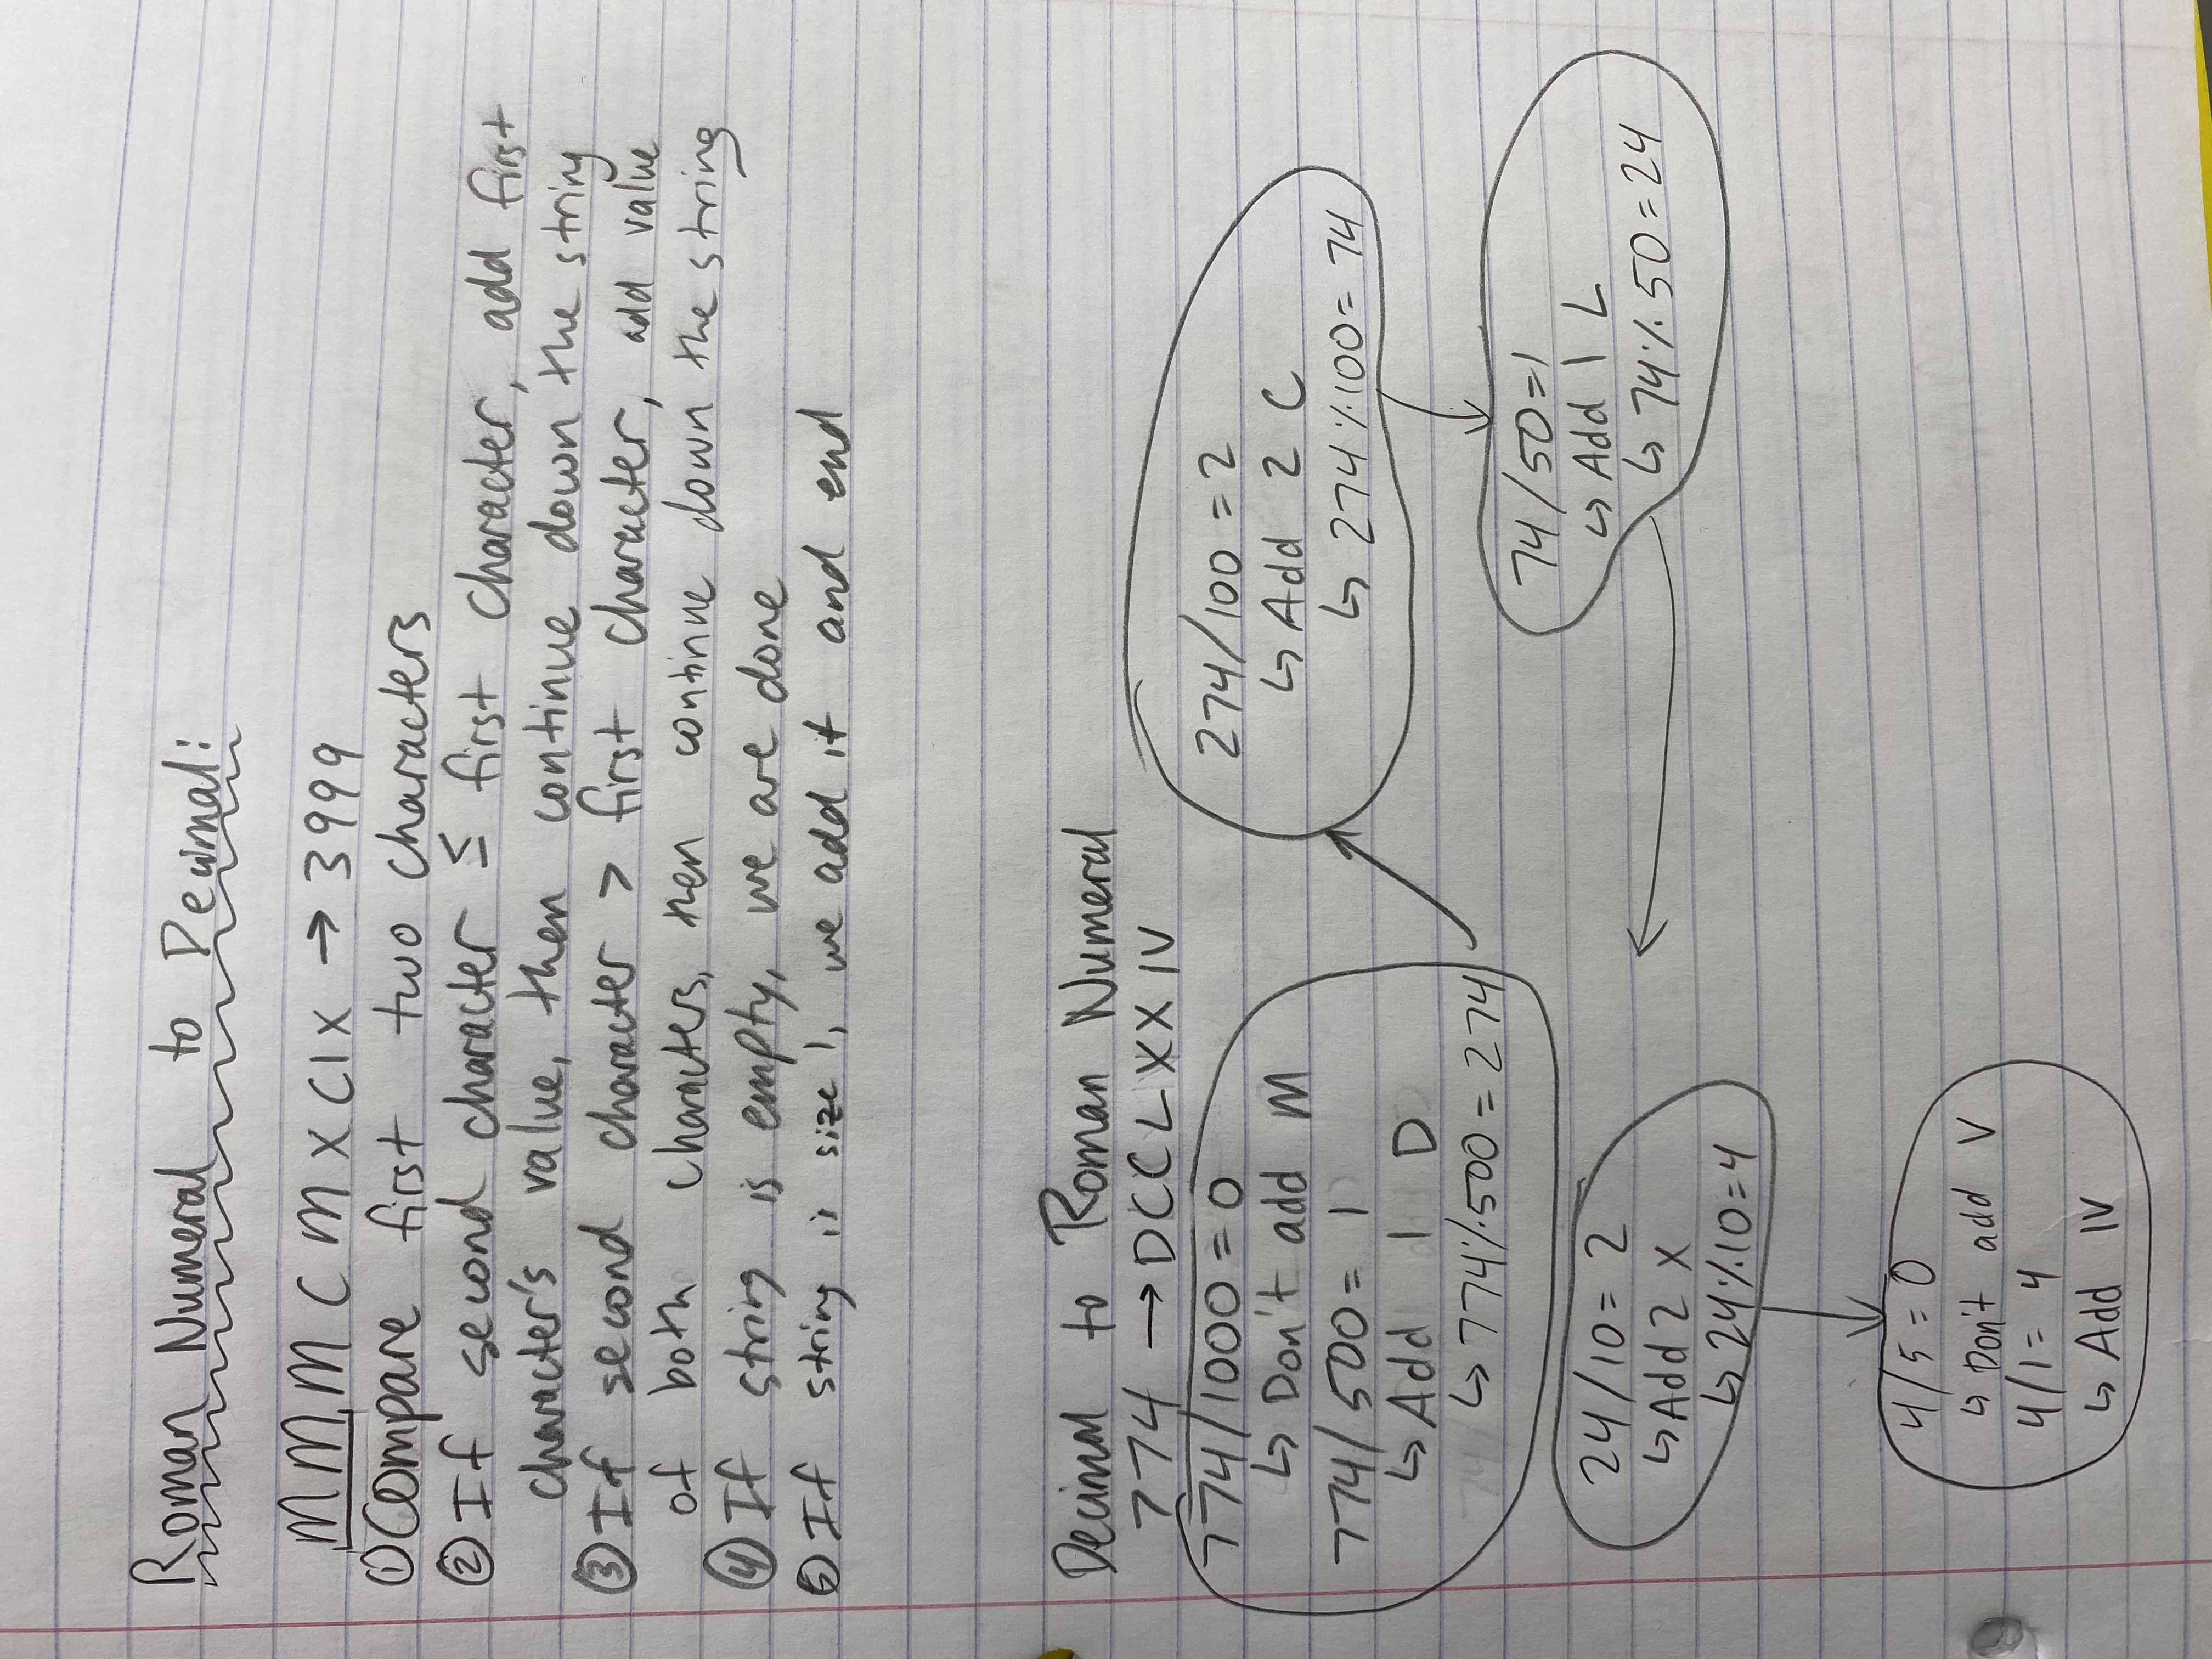 Roman Numeral to Decimal:
MMMCMXCIX → 3999
① Compare first two characters
② If second character ≤ first character, add first
character's value, then continue down the string
③ If second character > first character, add value
of both characters, then continue down the string
④ If string is empty, we are done
⑤ If string is size 1, we add it and end
Decimal to Roman Numeral
774 → DCCLXXIV
774/1000 = 0
↳ Don't add M
774/500 = 1
↳ Add 1 D
↳ 774%500 = 274
274/100 = 2
↳ Add 2 C
↳ 274%100 = 74
74/50=1
↳ Add 1 L
↳ 74%50=24
24/10= 2
↳ Add 2 X
↳ 24%10=4
4/5=0
↳ Don't add V
4/1= 4
↳ Add IV